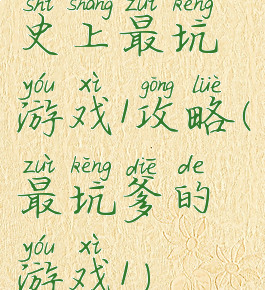 shǐ shàng zuì kēng
史上最坑
yóu xì gōng lüè
游戏1攻略(
zuì kēng diē de
最坑爹的
yóu xì
游戏1)